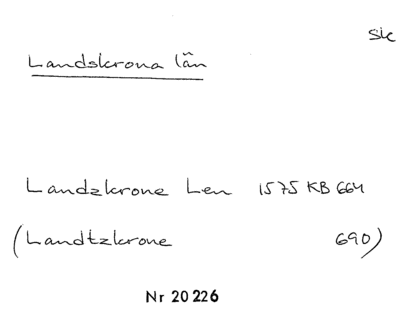 Sk
Landskrona län
Landzkrone Len 1575 KB 664
(Landtzkrone 690)
Nr 20226